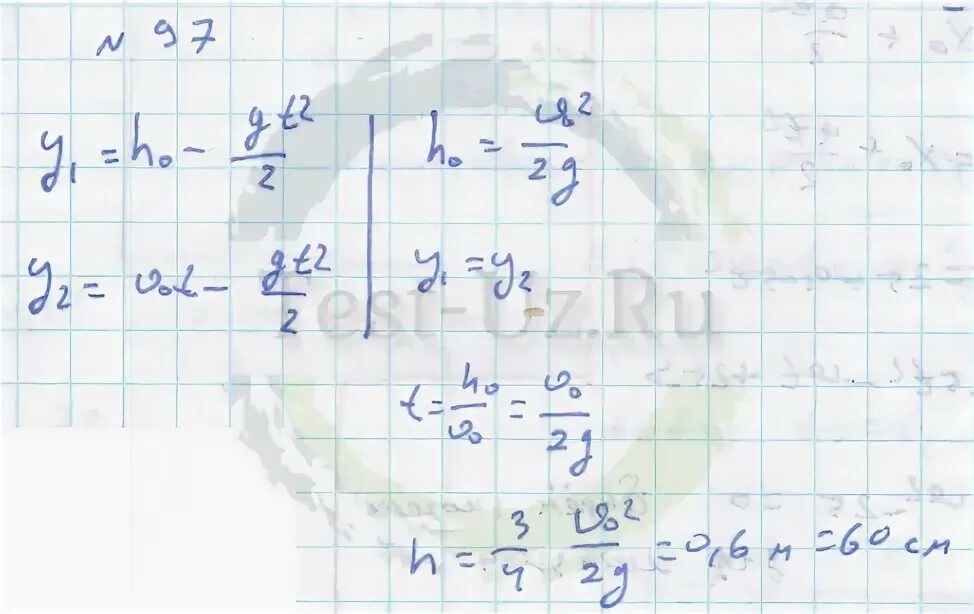 № 97
y₁ = h₀ − gt²/2
y₂ = v₀t − gt²/2
h₀ = v₀²/2g
y₁ = y₂
t = h₀/v₀ = v₀/2g
h = 3/4 v₀²/2g = 0,6 м = 60 см
Test-Uz.Ru